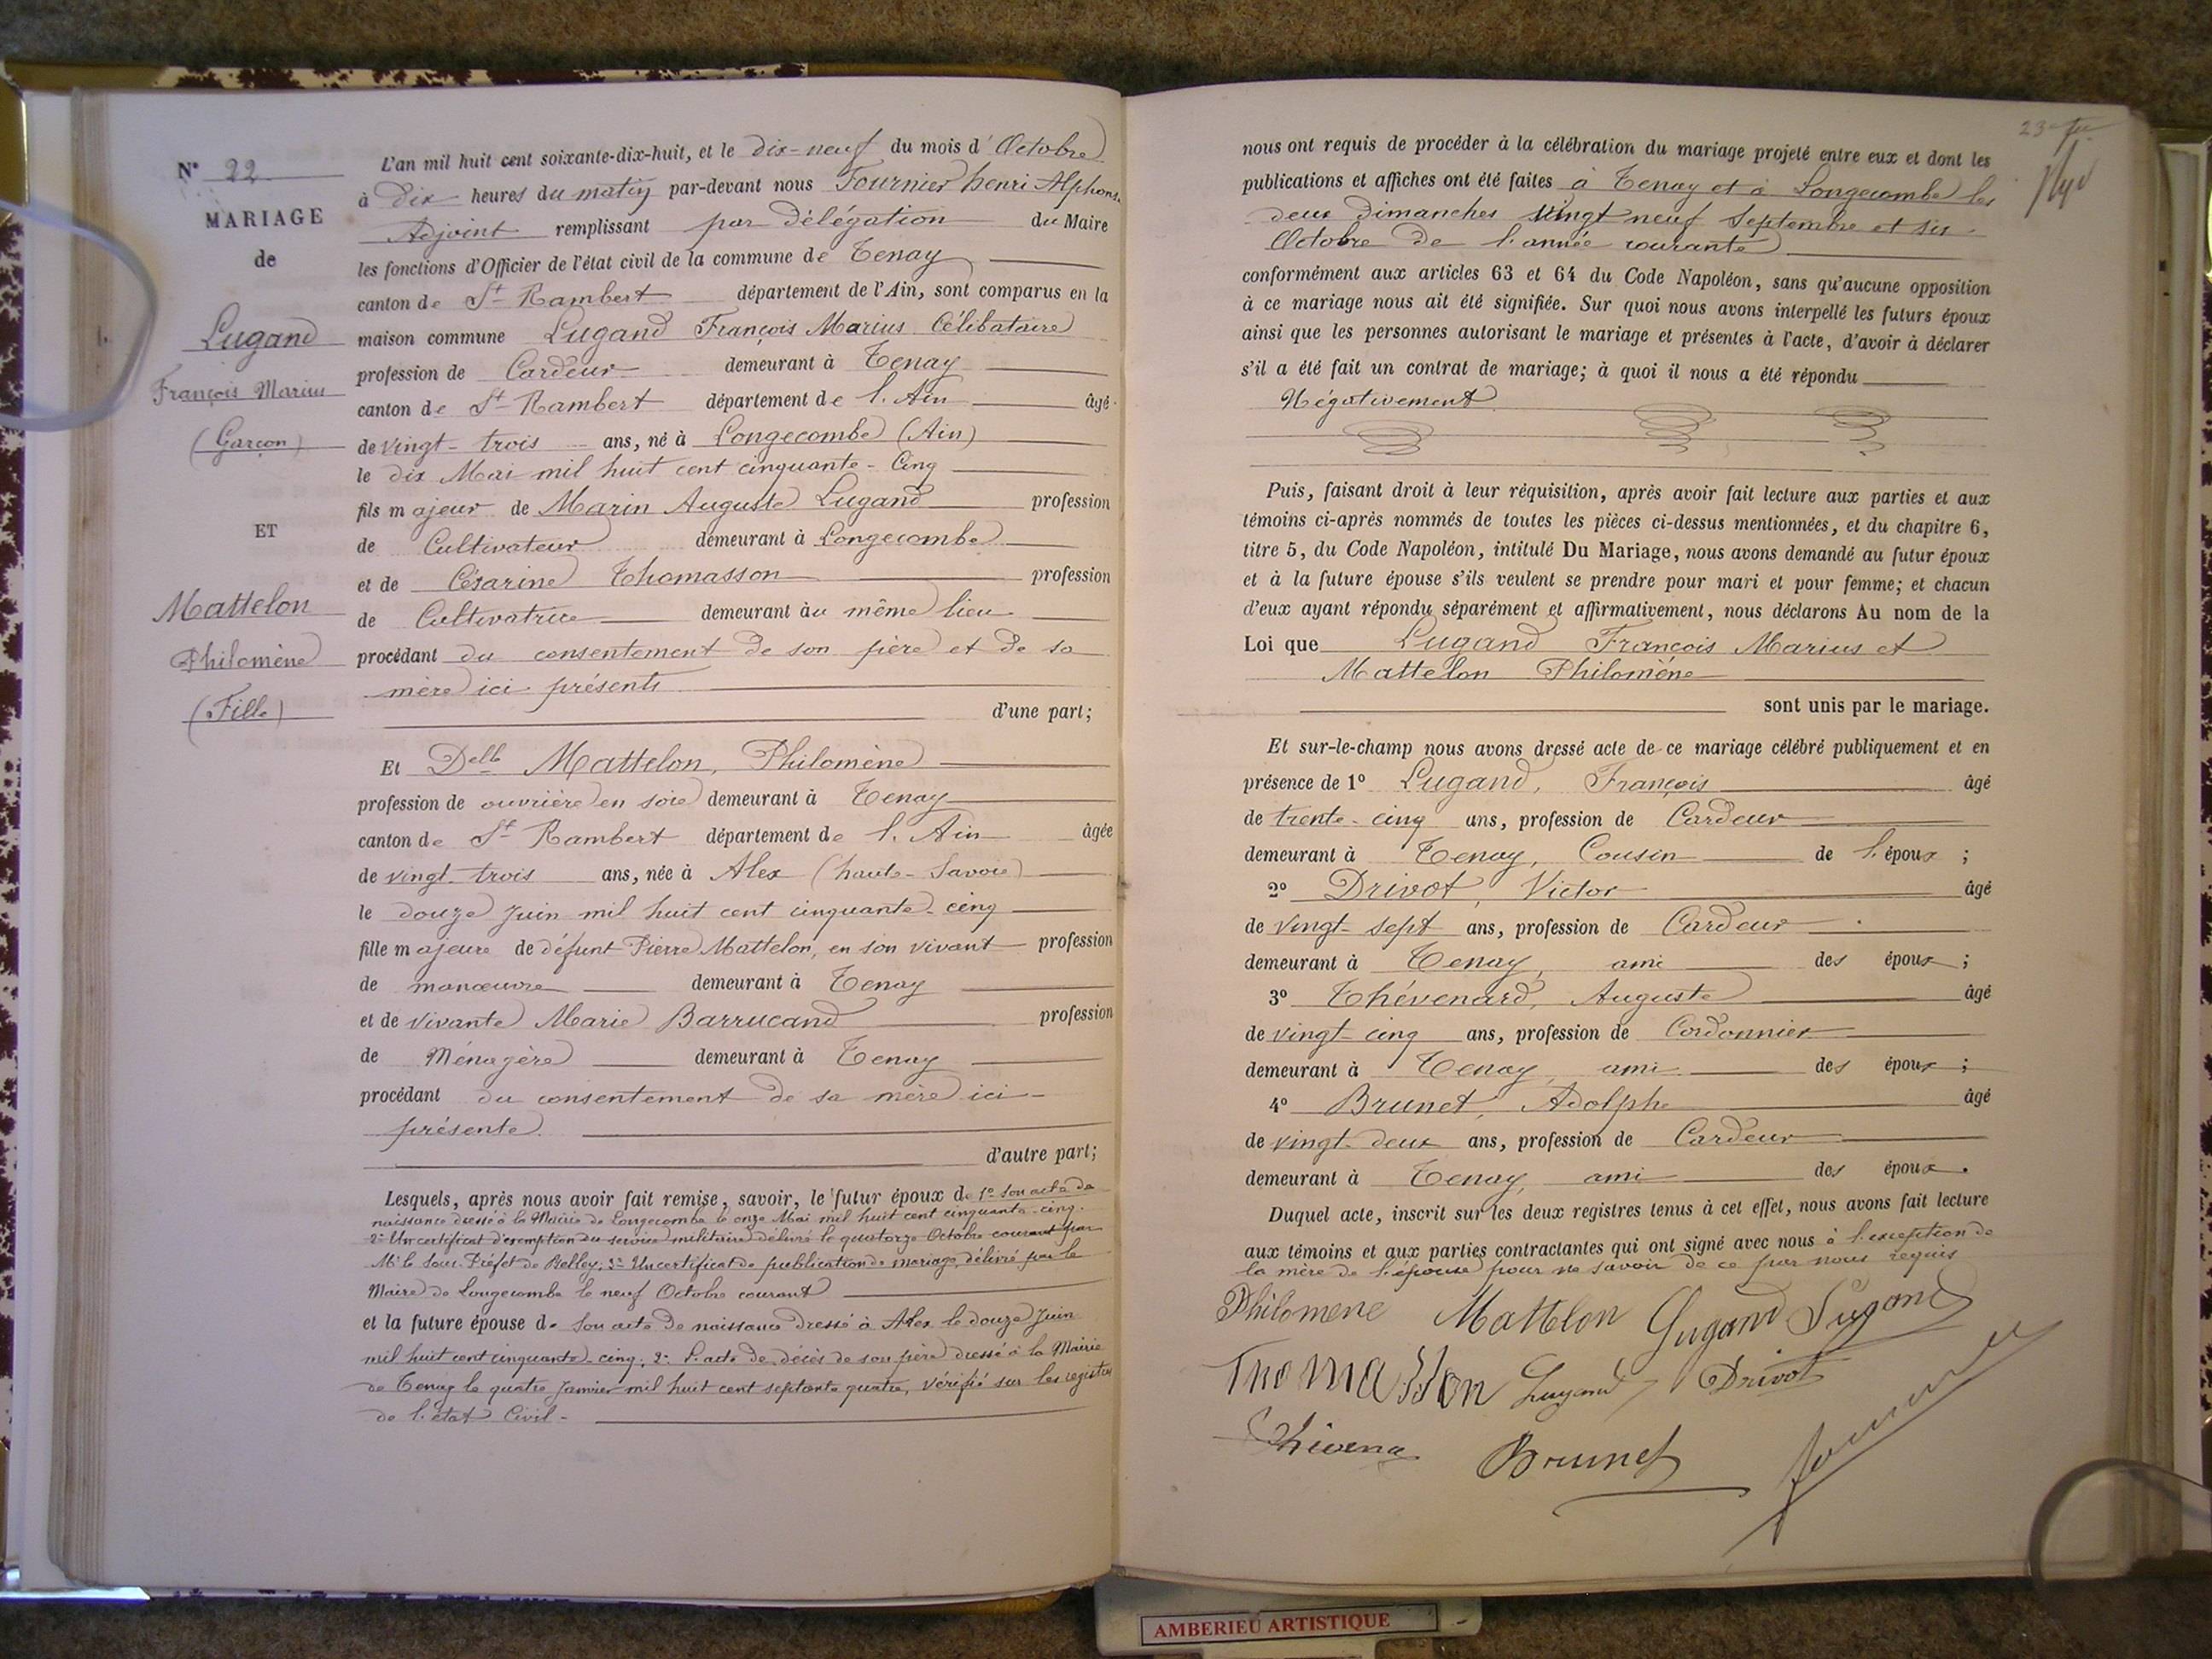 N° 22
MARIAGE
de
Lugand
François Marius
(Garçon)
ET
Mattelon
Philomène
(Fille)
L'an mil huit cent soixante-dix-huit, et le dix-neuf du mois d'Octobre
à dix heures du matin par-devant nous Fournier henri Alphonse
Adjoint remplissant par délégation du Maire
les fonctions d'Officier de l'état civil de la commune de Tenay
canton de St Rambert département de l'Ain, sont comparus en la
maison commune Lugand François Marius Célibataire
profession de Cardeur demeurant à Tenay
canton de St Rambert département de l'Ain âgé
de vingt-trois ans, né à Longecombe (Ain)
le dix Mai mil huit cent cinquante-Cinq
fils majeur de Marin Auguste Lugand profession
de Cultivateur demeurant à Longecombe
et de Césarine Thomasson profession
de Cultivatrice demeurant au même lieu
procédant du consentement de son père et de sa
mère ici présents
d'une part;
Et Delle Mattelon, Philomène
profession de ouvrière en soie demeurant à Tenay
canton de St Rambert département de l'Ain âgée
de vingt-trois ans, née à Alex (haute-Savoie)
le douze Juin mil huit cent cinquante-cinq
fille majeure de défunt Pierre Mattelon, en son vivant profession
de manœuvre demeurant à Tenay
et de vivante Marie Barrucand profession
de Ménagère demeurant à Tenay
procédant du consentement de sa mère ici-
présente.
d'autre part;
Lesquels, après nous avoir fait remise, savoir, le futur époux de 1° Son acte de
naissance dressé à la Mairie de Longecombe le onze Mai mil huit cent cinquante-cinq.
2° Un certificat d'exemption du service militaire délivré le quatorze Octobre courant par
Mr le Sous-Préfet de Belley; 3° Un certificat de publication de mariage, délivré par le
Maire de Longecombe le neuf Octobre courant
et la future épouse de Son acte de naissance dressé à Alex le douze Juin
mil huit cent cinquante-cinq; 2° L'acte de décès de son père dressé à la Mairie
de Tenay le quatre Janvier mil huit cent septante quatre, vérifié sur les registres
de l'état Civil-
23
nous ont requis de procéder à la célébration du mariage projeté entre eux et dont les
publications et affiches ont été faites à Tenay et à Longecombe les
deux Dimanches vingt neuf Septembre et six
Octobre de l'année courante
conformément aux articles 63 et 64 du Code Napoléon, sans qu'aucune opposition
à ce mariage nous ait été signifiée. Sur quoi nous avons interpellé les futurs époux
ainsi que les personnes autorisant le mariage et présentes à l'acte, d'avoir à déclarer
s'il a été fait un contrat de mariage; à quoi il nous a été répondu
Négativement
Puis, faisant droit à leur réquisition, après avoir fait lecture aux parties et aux
témoins ci-après nommés de toutes les pièces ci-dessus mentionnées, et du chapitre 6,
titre 5, du Code Napoléon, intitulé Du Mariage, nous avons demandé au futur époux
et à la future épouse s'ils veulent se prendre pour mari et pour femme; et chacun
d'eux ayant répondu séparément et affirmativement, nous déclarons Au nom de la
Loi que Lugand François Marius et
Mattelon Philomène
sont unis par le mariage.
Et sur-le-champ nous avons dressé acte de ce mariage célébré publiquement et en
présence de 1° Lugand, François âgé
de trente-cinq ans, profession de Cardeur
demeurant à Tenay, Cousin de l'époux ;
2° Drivot, Victor âgé
de vingt-sept ans, profession de Cardeur
demeurant à Tenay, ami des époux ;
3° Thévenard, Auguste âgé
de vingt-cinq ans, profession de Cordonnier
demeurant à Tenay, ami des époux ;
4° Brunet, Adolphe âgé
de vingt-deux ans, profession de Cardeur
demeurant à Tenay, ami des époux.
Duquel acte, inscrit sur les deux registres tenus à cet effet, nous avons fait lecture
aux témoins et aux parties contractantes qui ont signé avec nous à l'exception de
la mère de l'épouse pour ne savoir de ce par nous requis
Philomene Mattelon Lugand Lugand
Thomasson Lugand Drivot
Brunet
AMBERIEU ARTISTIQUE